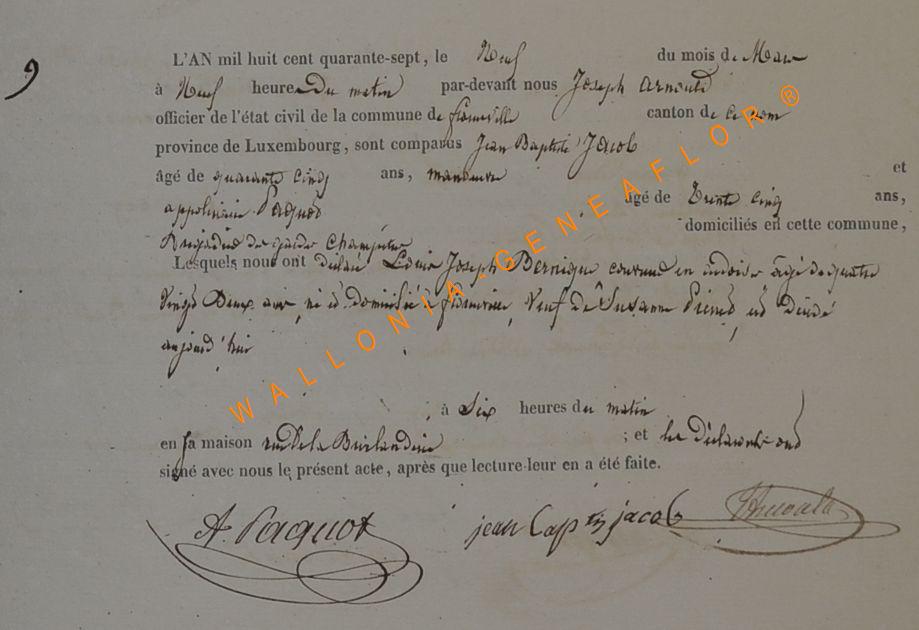 9
L'AN mil huit cent quarante-sept, le Neuf du mois de Mars
à Neuf heures Du matin par-devant nous Joseph Arnould
officier de l'état civil de la commune de florenville canton de ce nom
province de Luxembourg, sont comparus Jean Baptiste Jacob
âgé de quarante cinq ans, manoeuvre et
appolinaire Paquot âgé de Trente cinq ans,
Brigadier de gardes Champêtres domiciliés en cette commune,
Lesquels nous ont déclaré Louis Joseph Bernique couvreur en ardoise âgé de quatre
Vingt Deux ans, né et domicilié à florenville, Veuf de Suzanne est Décédé
aujourd'hui
à Six heures du matin
en sa maison rue de la ; et les Déclarants ont
signé avec nous le présent acte, après que lecture leur en a été faite.
A. Paquot jean bapte jacob JArnould
WALLONIA-GENEAFLOR®